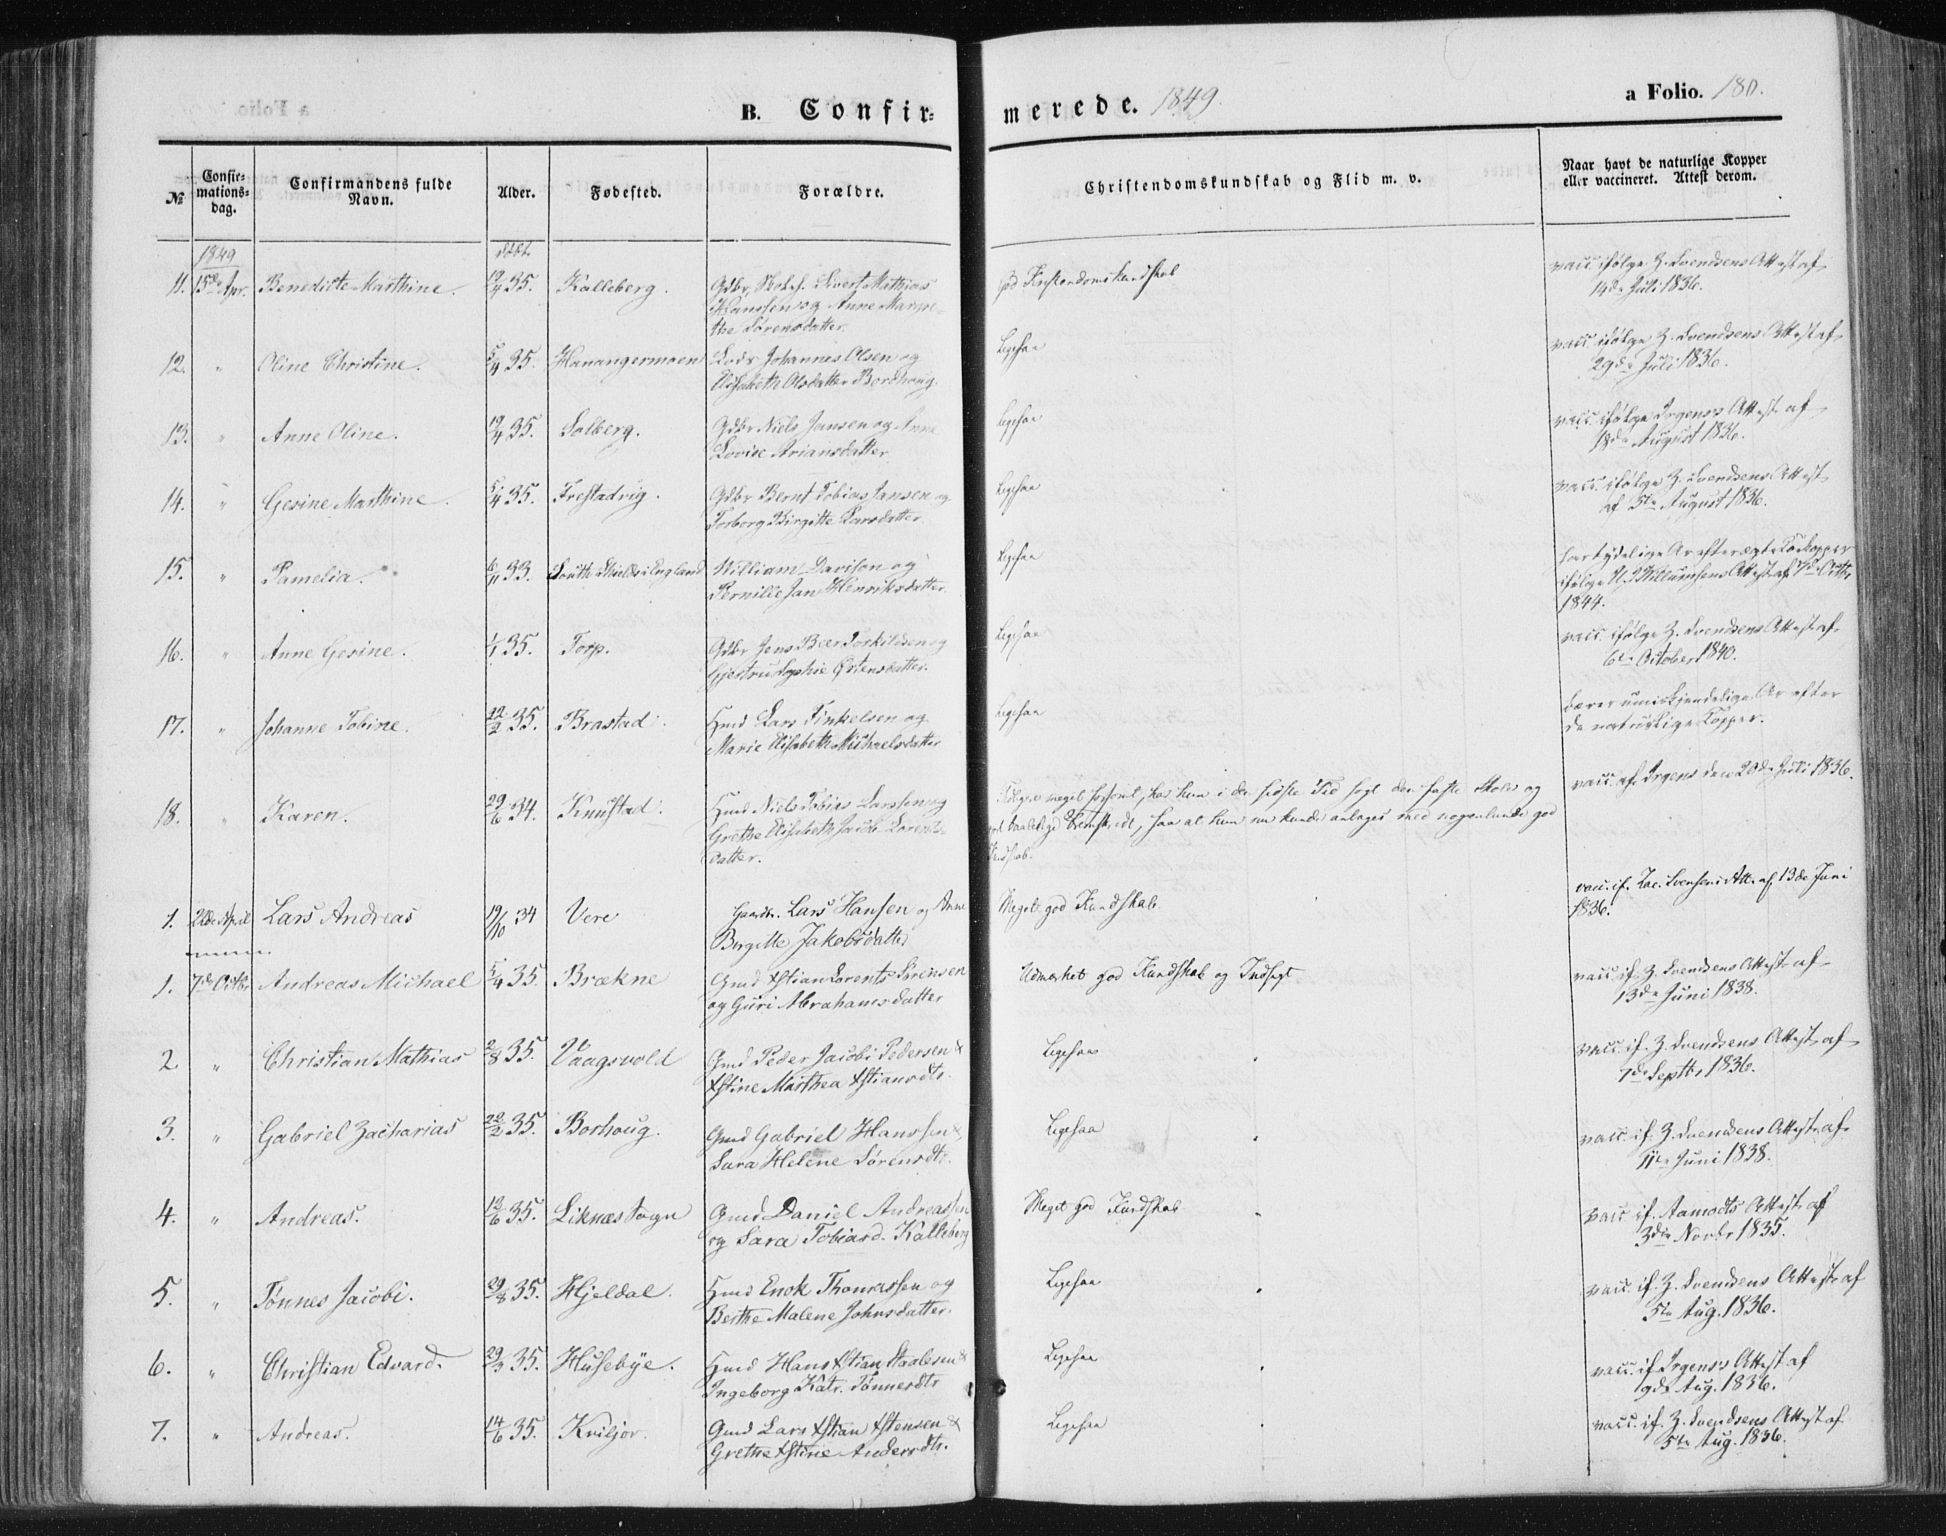 B. Confir-
merede. 1849.
a Folio. 180.
№
Confir-
mations-
dag.
Confirmandens fulde
Navn.
Alder.
Fødested.
Forældre.
Christendomskundskab og Flid m. v.
Naar havt de naturlige Kopper
eller vaccineret. Attest derom.
1849
døbt
11. 15de Apr. Benedicte Marthine. 19/4 35. Kalleberg. Gdbr. Sivert Mathias
Hanssen og Anne Margre-
the Sørensdatter.
god Kristendomskundskab
vacc. ifølge Z. Svendsens Attest af
14de Juli 1836.
12. " Oline Christine. 5/4 35. Hanangermoen Lods Johannes Olsen og
Elisabeth Olsdatter Bordhoug.
Ligesaa
vacc. ifølge Z. Svendsens Attest af
29de Juli 1836.
13. " Anne Oline. 19/4 35. Solberg. Gdbr Niels Jansen og Anne
Lovise Ariansdatter
Ligesaa
vacc. ifølge Irgens's Attest af
18de August 1836.
14. " Gesine Marthine. 5/4 35. Frestadvig. Gdbr Bernt Tobias Jansen og
Torborg Birgitte Larsdatter.
Ligesaa
vacc. ifølge Z. Svendsens Attest
af 5te August 1836.
15. " Pamelia. 6/11 33. South Shields i England William Davison og
Pernille Jan Henriksdatter.
Ligesaa
har tydelige Ar efter ægte Kokopper
ifølge Willumsens Attest af 7de Octbr.
1844.
16. " Anne Gesine. 1/1 35. Torp. Gdbr Jens Beer Torkildsen og
Gjertrud Sophie Østensdatter.
Ligesaa
vacc. ifølge Z. Svendsens Attest af
6te October 1840.
17. " Johanne Tobine. 22/2 35. Brastad. Hmd Lars Tinkelsen og
Marie Elisabeth Michaelsdatter
Ligesaa
bærer umiskjendelige Ar efter
de naturlige Kopper.
18. " Karen. 29/6 34. Knustad. Hmd Niels Tobias Larssen og
Grethe Elisabeth Jacob Lorents-
datter.
Tidligere meget forsømt, har hun i den sidste Tid søgt den faste Skole og
gjort saadanne Fremskridt, saa at hun nu kunde antages med nogenlunde god
Kundskab.
vacc. af Irgens den 20de Juli 1836.
1. 22de April Lars Andreas 19/10 34 Vere Gaardbr. Lars Hansen og Anne
Birgitte Jakobsdatter
Meget god Kundskab
vacc. if. Zac. Svensens Att. af 13de Juni
1836.
1. 7de Octbr Andreas Michael 5/4 35. Brækne Gmd Xstian Lorents Sørensen
og Guri Abrahamsdatter
Udmærket god Kundskab og Indsigt
vacc. if. Z. Svendsens Attest af
13de Juni 1838.
2 " Christian Mathias 2/8 35. Vaagsvold Gmd Peder Jacobi Pedersen &
Xstine Marthea Xstiansdtr.
Ligesaa
vacc. if. Z. Svendsens Attest af
7de Septbr 1836.
3. " Gabriel Zacharias 22/2 35. Borhoug. Gmd Gabriel Hanssen &
Sara Helene Sørensdtr.
Ligesaa
vacc. if. Z. Svendsens Attest af
11te Juni 1838.
4. " Andreas. 12/6 35. Liknæs Sogn Gmd Daniel Andreassen
og Sara Tobiasd. Kalleberg
Meget god Kundskab
vacc. if. Aamodts Attest af
3die Novbr 1835.
5. " Tønnes Jacobi. 29/8 35. Hjeldal. Hmd Enok Thomassen og
Berthe Malene Johnsdatter.
Ligesaa
vacc. if. Z. Svendsens Attest af
5te Aug. 1836.
6. " Christian Edvard. 29/3 35. Husebye. Hmd Hans Xstian Staalesen &
Ingeborg Katr. Tønnesdtr
Ligesaa
vacc. if. Irgens's Attest af
9de Aug. 1836.
7. " Andreas. 14/6 35. Kviljor. Gmd Lars Xstian Xstensen &
Grethe Xstine Andersdtr.
Ligesaa
vacc. if. Z. Svendsens Attest af
5te Aug. 1836.